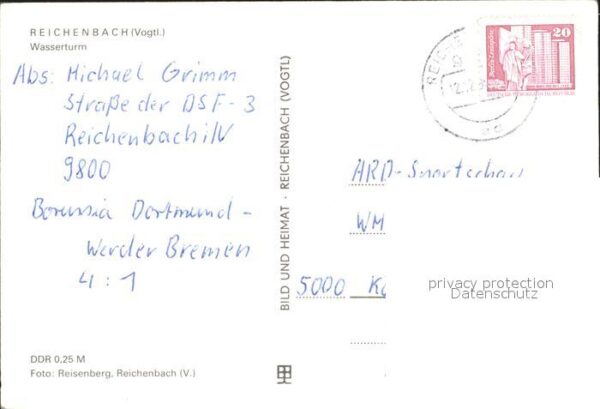 REICHENBACH (Vogtl.)
Wasserturm
Abs: Michael Grimm
Straße der DSF - 3
Reichenbach i/V
9800
Borussia Dortmund -
Werder Bremen
4 : 1
DDR 0,25 M
Foto: Reisenberg, Reichenbach (V.)
BILD UND HEIMAT · REICHENBACH (VOGTL)
20
ARD-
WM
5000
privacy protection
Datenschutz